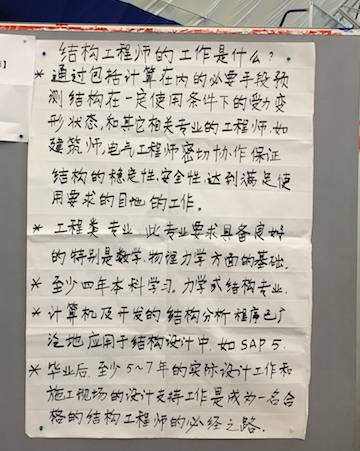 结构工程师的工作是什么?
* 通过包括计算在内的必要手段预
测结构在一定使用条件下的受力变
形状态,和其它相关专业的工程师,如
建筑师,电气工程师密切协作保证
结构的稳定性,安全性,达到满足使
用要求的目地的工作。
* 工程类专业,此专业要求具备良好
的特别是数学,物理力学方面的基础.
* 至少四年本科学习,力学或结构专业.
* 计算机及开发的结构分析程序已广
泛地应用于结构设计中.如SAP 5.
* 毕业后,至少5~7年的实际设计工作和
施工现场的设计支持工作是成为一名合
格的结构工程师的必经之路.